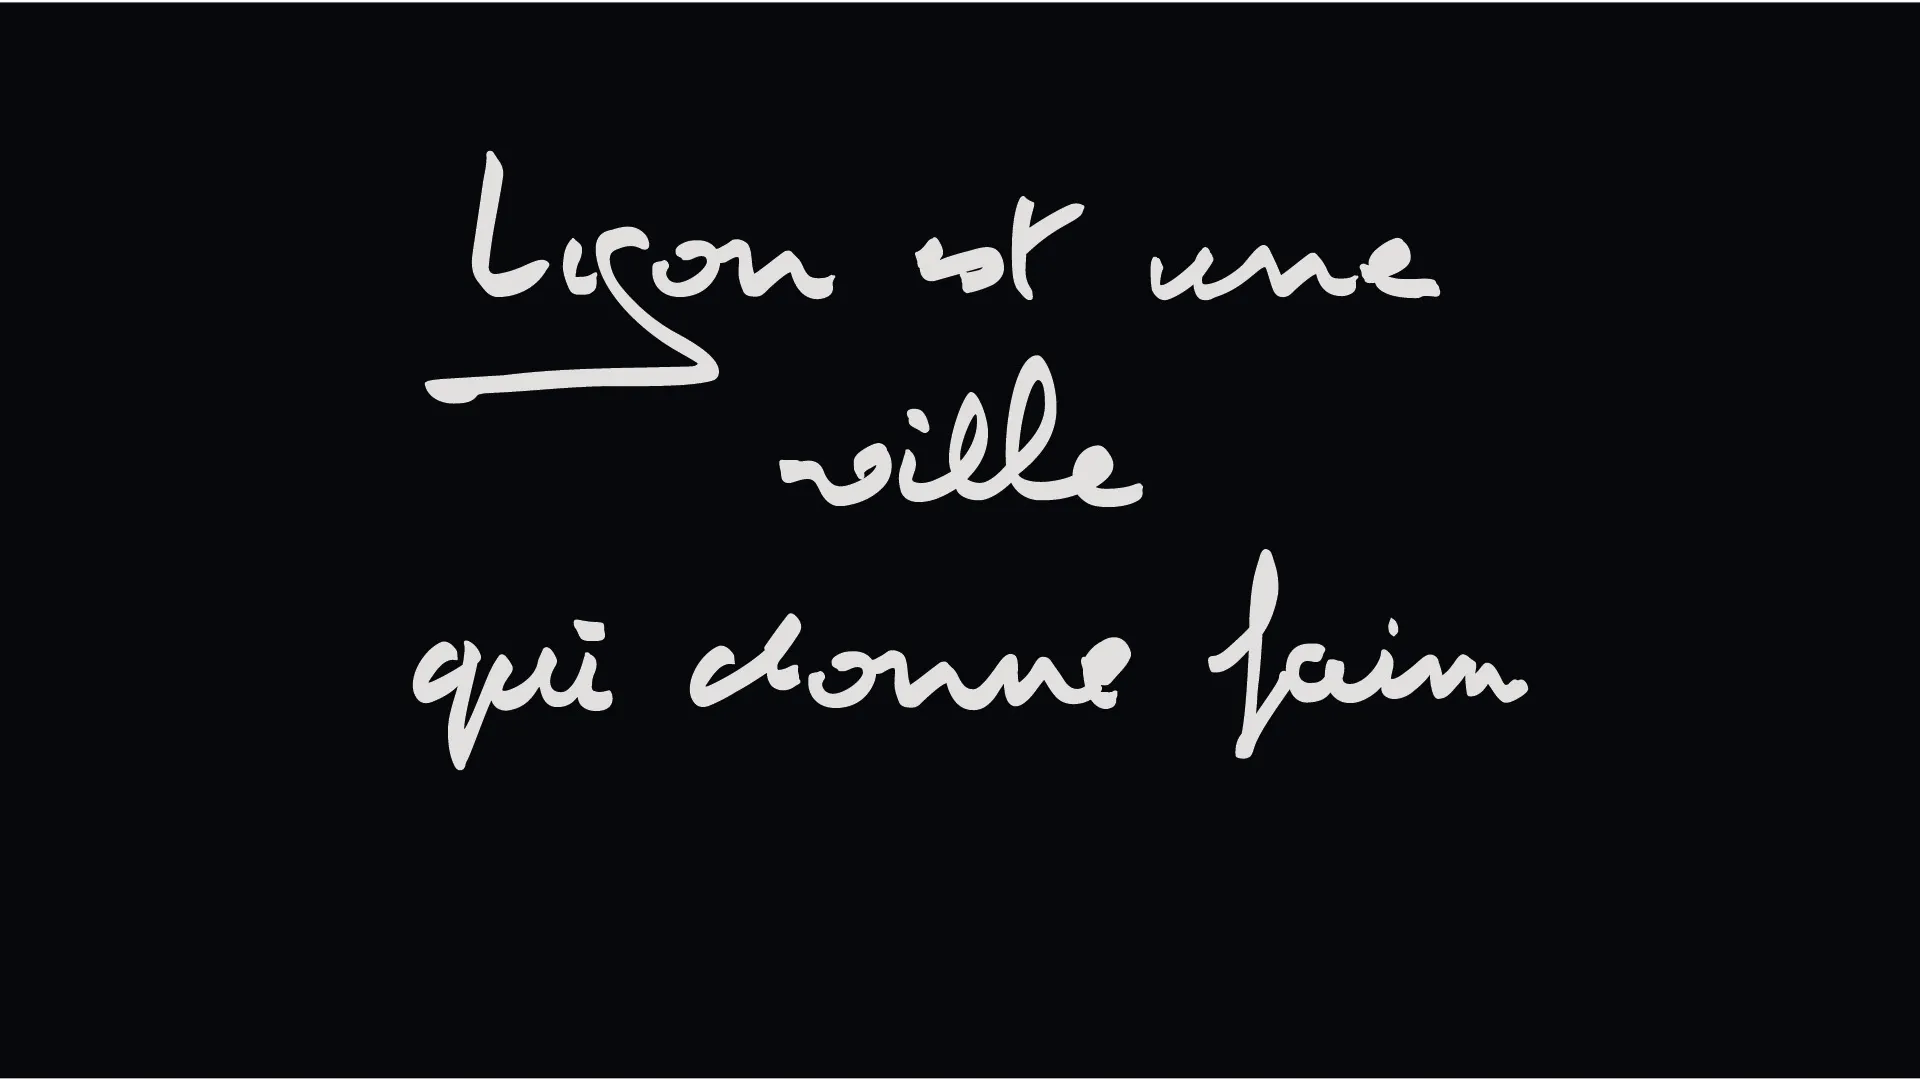 Lyon est une
ville
qui donne faim